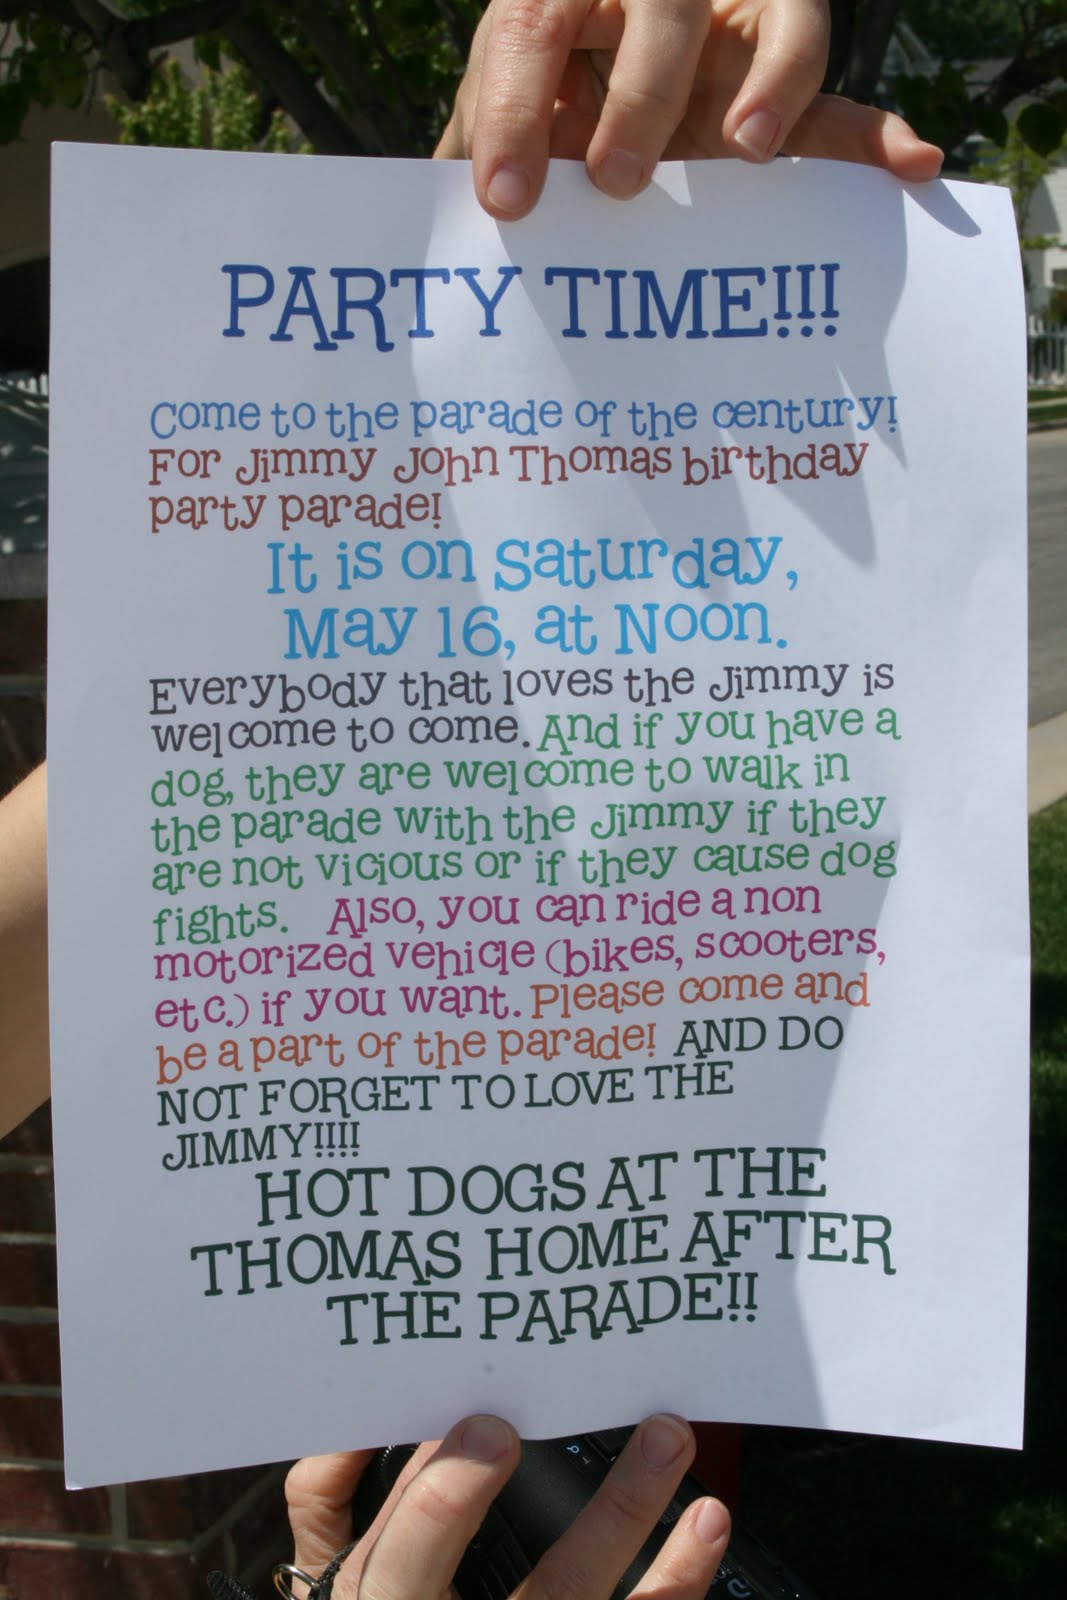 PARTY TIME!!!
Come to the parade of the century!
For Jimmy John Thomas birthday
party parade!
It is on Saturday,
May 16, at Noon.
Everybody that loves the Jimmy is
welcome to come. And if you have a
dog, they are welcome to walk in
the parade with the Jimmy if they
are not vicious or if they cause dog
fights. Also, you can ride a non
motorized vehicle (bikes, scooters,
etc.) if you want. Please come and
be a part of the parade! AND DO
NOT FORGET TO LOVE THE
JIMMY!!!!
HOT DOGS AT THE
THOMAS HOME AFTER
THE PARADE!!